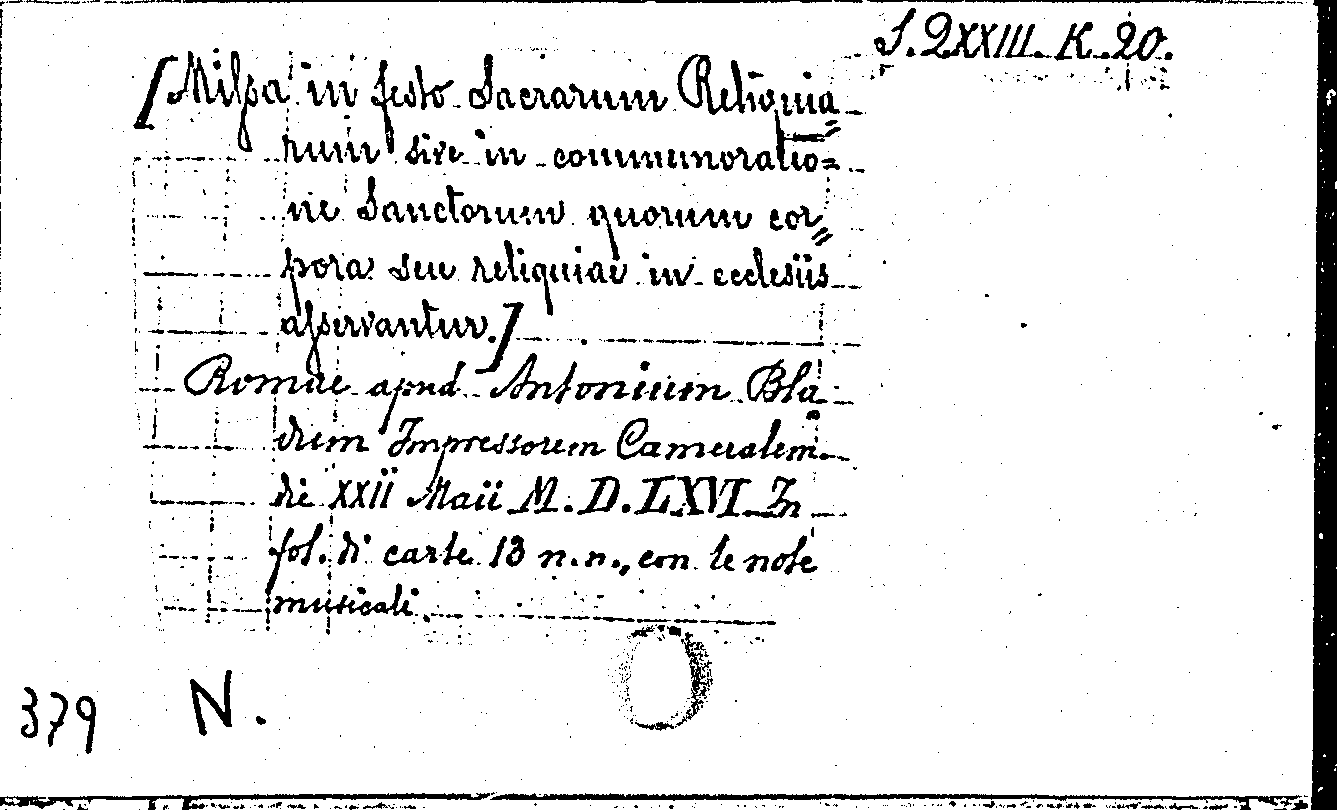 S. QXXIII. K. 20.
[Missa in festo Sacrarum Reliquia=
rum sive in commemoratio=
ne Sanctorum quorum cor=
pora seu reliquiae in ecclesiis
asservantur.]
Romae apud Antonium Bla=
dum Impressorem Cameralem
die XXII Maii M.D.LXVI In
fol. di carte 13 n.n., con le note
musicali.
379 N.